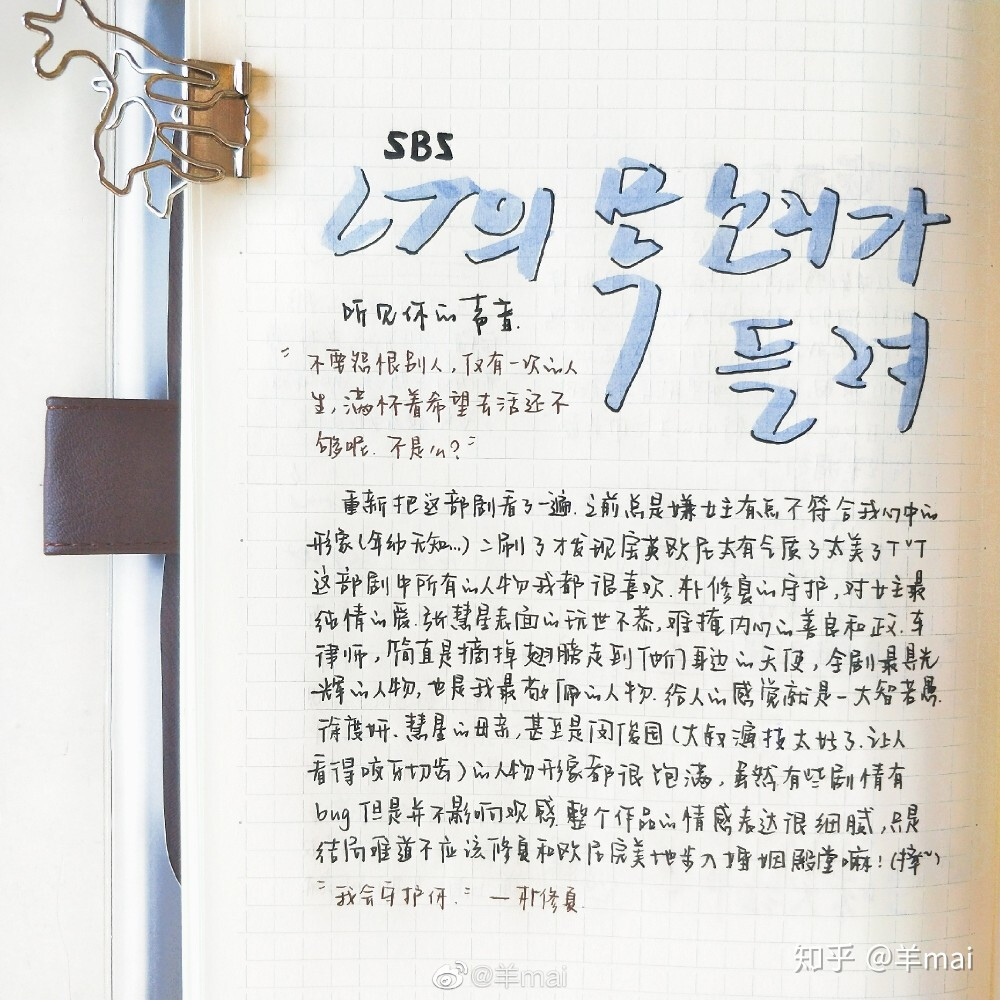 SBS
너의 목소리가
들려
听见你的声音.
"不要怨恨别人,仅有一次的人
生,满怀着希望去活还不
够呢.不是么?"
重新把这部剧看了一遍.之前总是嫌女主有点不符合我心中的
形象(年幼无知...)二刷了才发现宝英欧尼太有气质了太美了T^T
这部剧中所有的人物我都很喜欢.朴修夏的守护,对女主最
纯情的爱.张慧星表面的玩世不恭,难掩内心的善良和正.车
律师,简直是摘掉翅膀走到他们身边的天使,全剧最具光
辉的人物,也是我最敬佩的人物.给人的感觉就是一大智若愚.
徐度妍、慧星的母亲,甚至是闵俊国(大叔演技太好了.让人
看得咬牙切齿)的人物形象都很饱满,虽然有些剧情有
bug但是并不影响观感.整个作品的情感表达很细腻,只是
结局难道不应该修夏和欧尼完美地步入婚姻殿堂嘛!(摔~)
"我会守护你."—朴修夏.
@羊mai
知乎 @羊mai